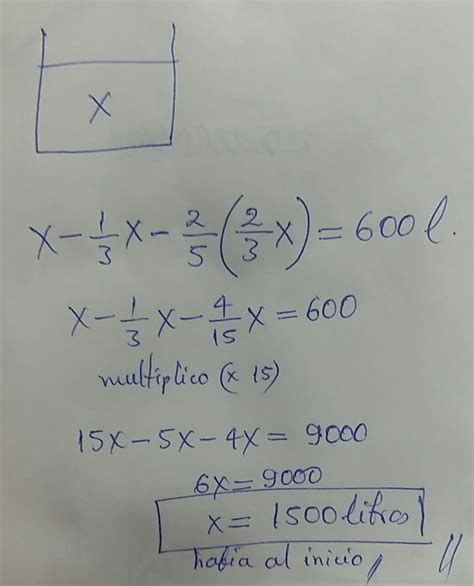 X
X - 1/3 X - 2/5 (2/3 X) = 600 l.
X - 1/3 X - 4/15 X = 600
multiplico (x 15)
15X - 5X - 4X = 9000
6X = 9000
X = 1500 litros
había al inicio